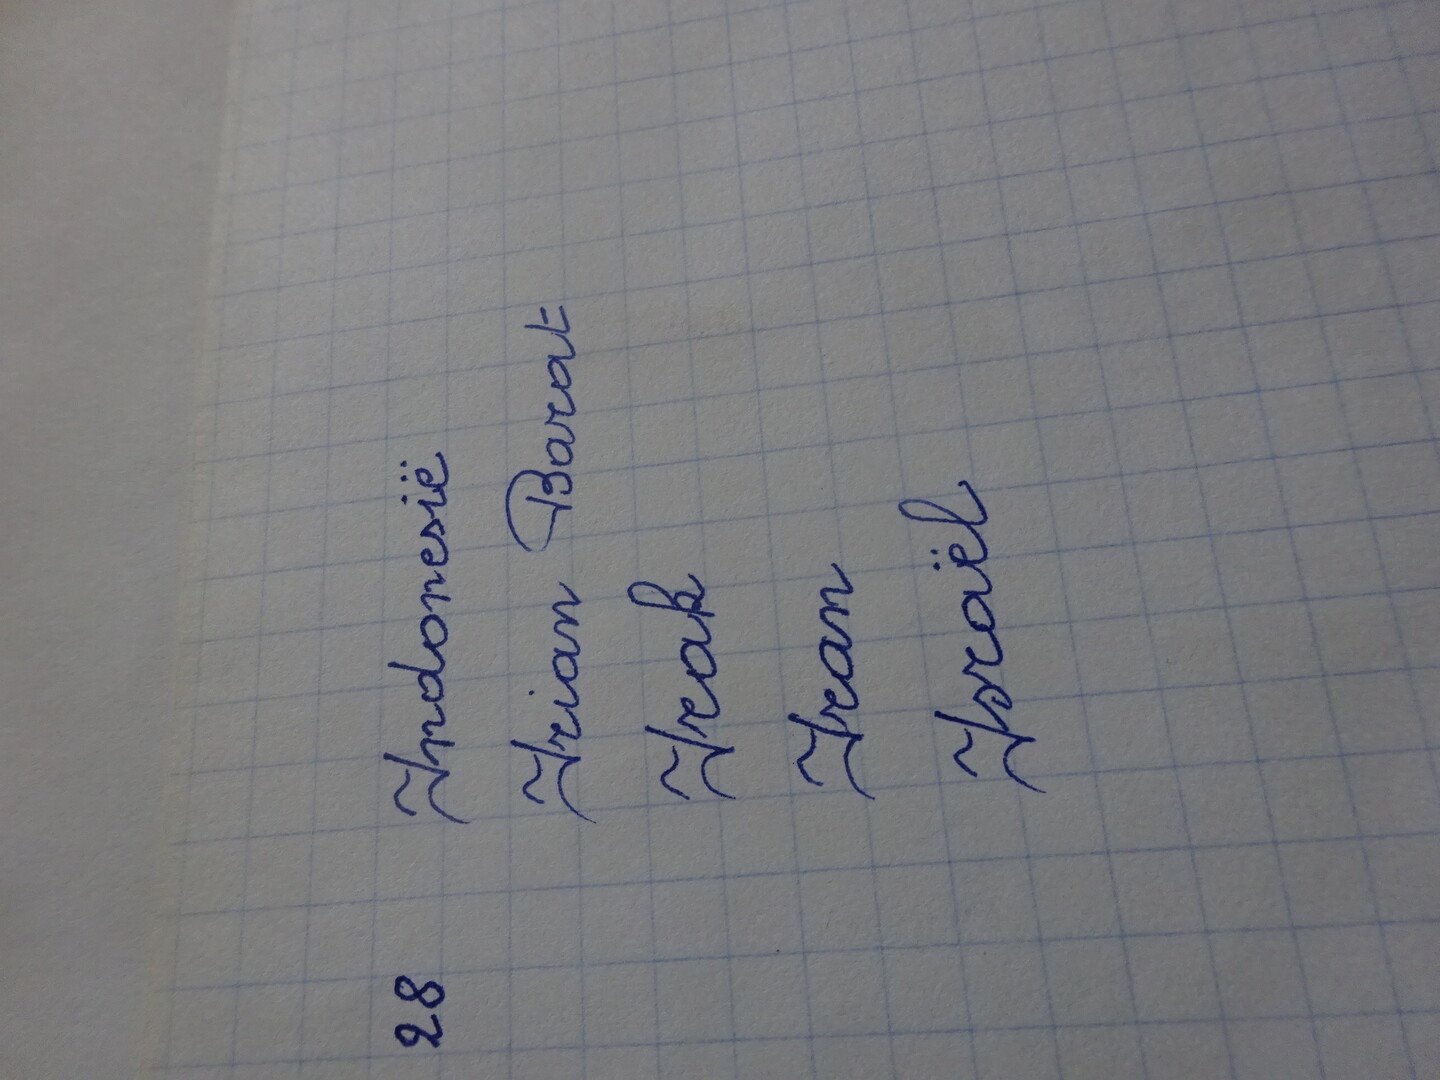 28 Indonesië
Irian Barat
Irak
Iran
Israël